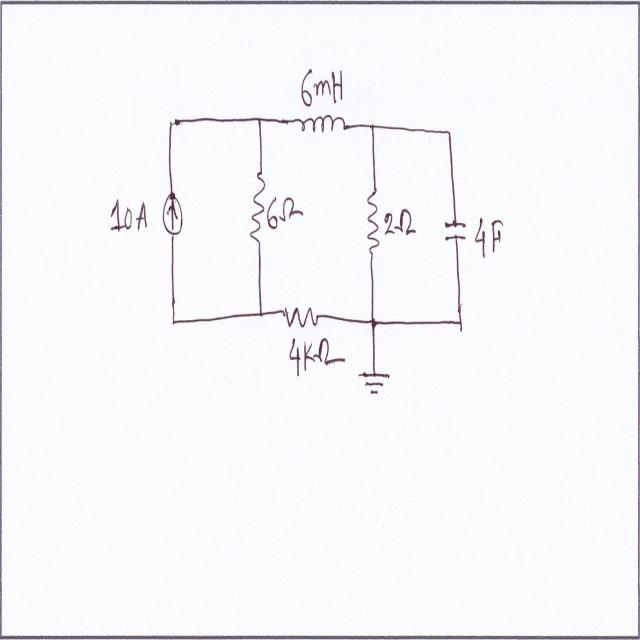 6mH
10A
6Ω
2Ω
4F
4KΩ